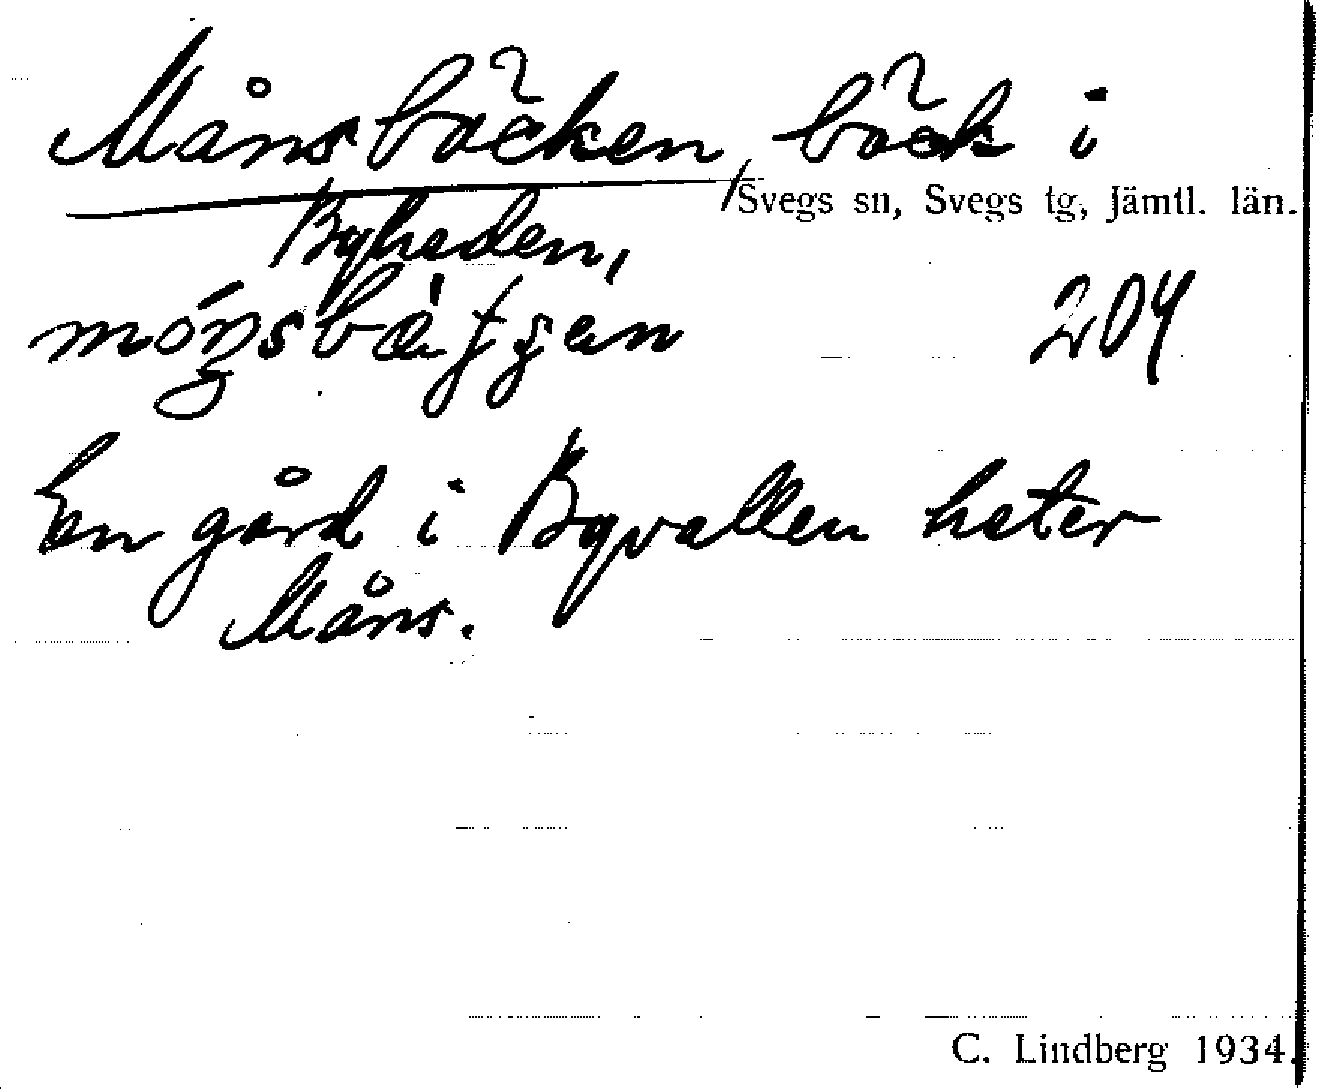 Månsbäcken, bäck i
Svegs sn, Svegs tg, Jämtl. län.
Byheden,
204
En gård i Byvallen heter
Måns.
C. Lindberg 1934.